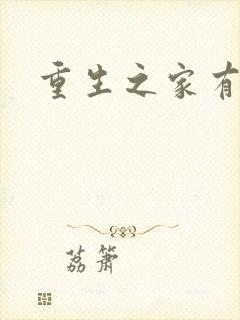 重生之家有
荔箫